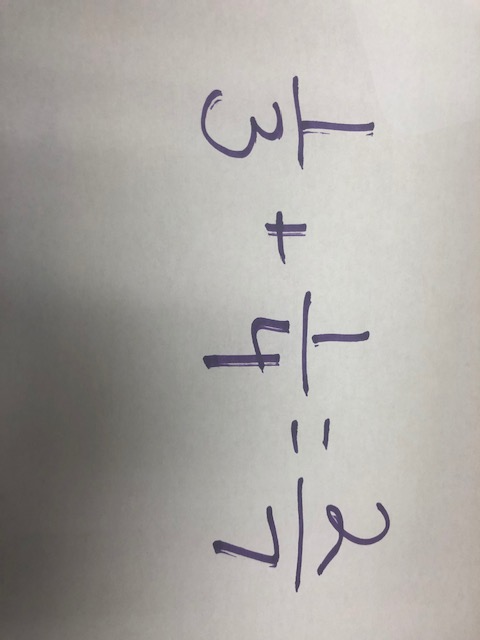 1/3 + 1/4 = 2/7